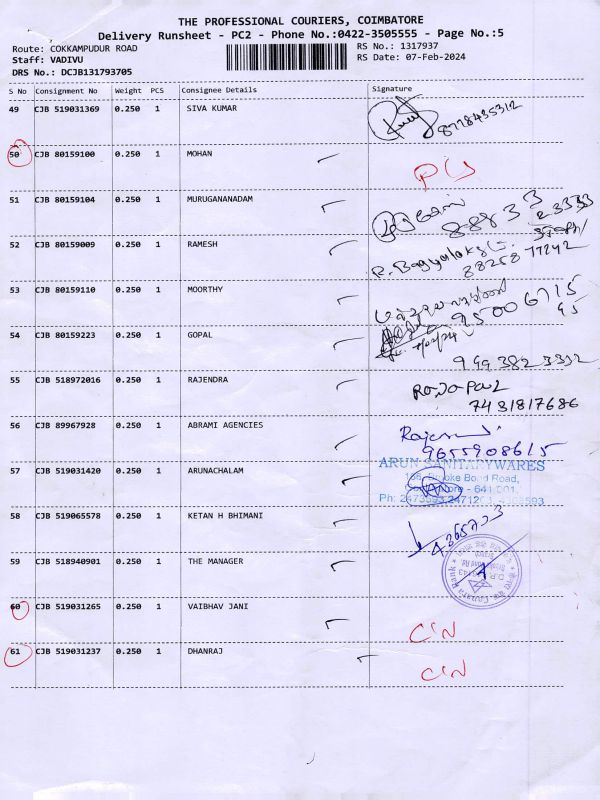 THE PROFESSIONAL COURIERS, COIMBATORE
Delivery Runsheet - PC2 - Phone No.:0422-3505555 - Page No.:5
Route: COKKAMPUDUR ROAD
RS No.: 1317937
Staff: VADIVU
RS Date: 07-Feb-2024
DRS No.: DCJB131793705
S No Consignment No Weight PCS Consignee Details Signature
49 CJB 519031369 0.250 1 SIVA KUMAR 8778435312
50 CJB 80159100 0.250 1 MOHAN
51 CJB 80159104 0.250 1 MURUGANANADAM
52 CJB 80159009 0.250 1 RAMESH
53 CJB 80159110 0.250 1 MOORTHY
54 CJB 80159223 0.250 1 GOPAL
55 CJB 518972016 0.250 1 RAJENDRA
7431817686
56 CJB 89967928 0.250 1 ABRAMI AGENCIES
9655908615
ARUN SANITARYWARES
57 CJB 519031420 0.250 1 ARUNACHALAM
Road,
641 001.
58 CJB 519065578 0.250 1 KETAN H BHIMANI
59 CJB 518940901 0.250 1 THE MANAGER
60 CJB 519031265 0.250 1 VAIBHAV JANI C/N
61 CJB 519031237 0.250 1 DHANRAJ C/N